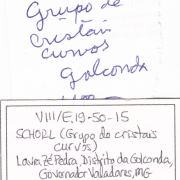 Grupo de
cristais
curvos
Golconda
VIII/E,19-50-15
SCHORL (Grupo de cristais
curvos)
Lavra Zé Pedra, Distrito da Golconda,
Governador Valadares, MG